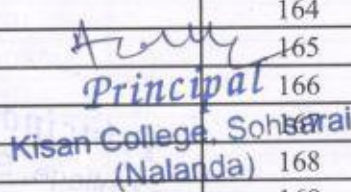 164
165
Principal 166
Kisan College, Sohsarai
(Nalanda) 168